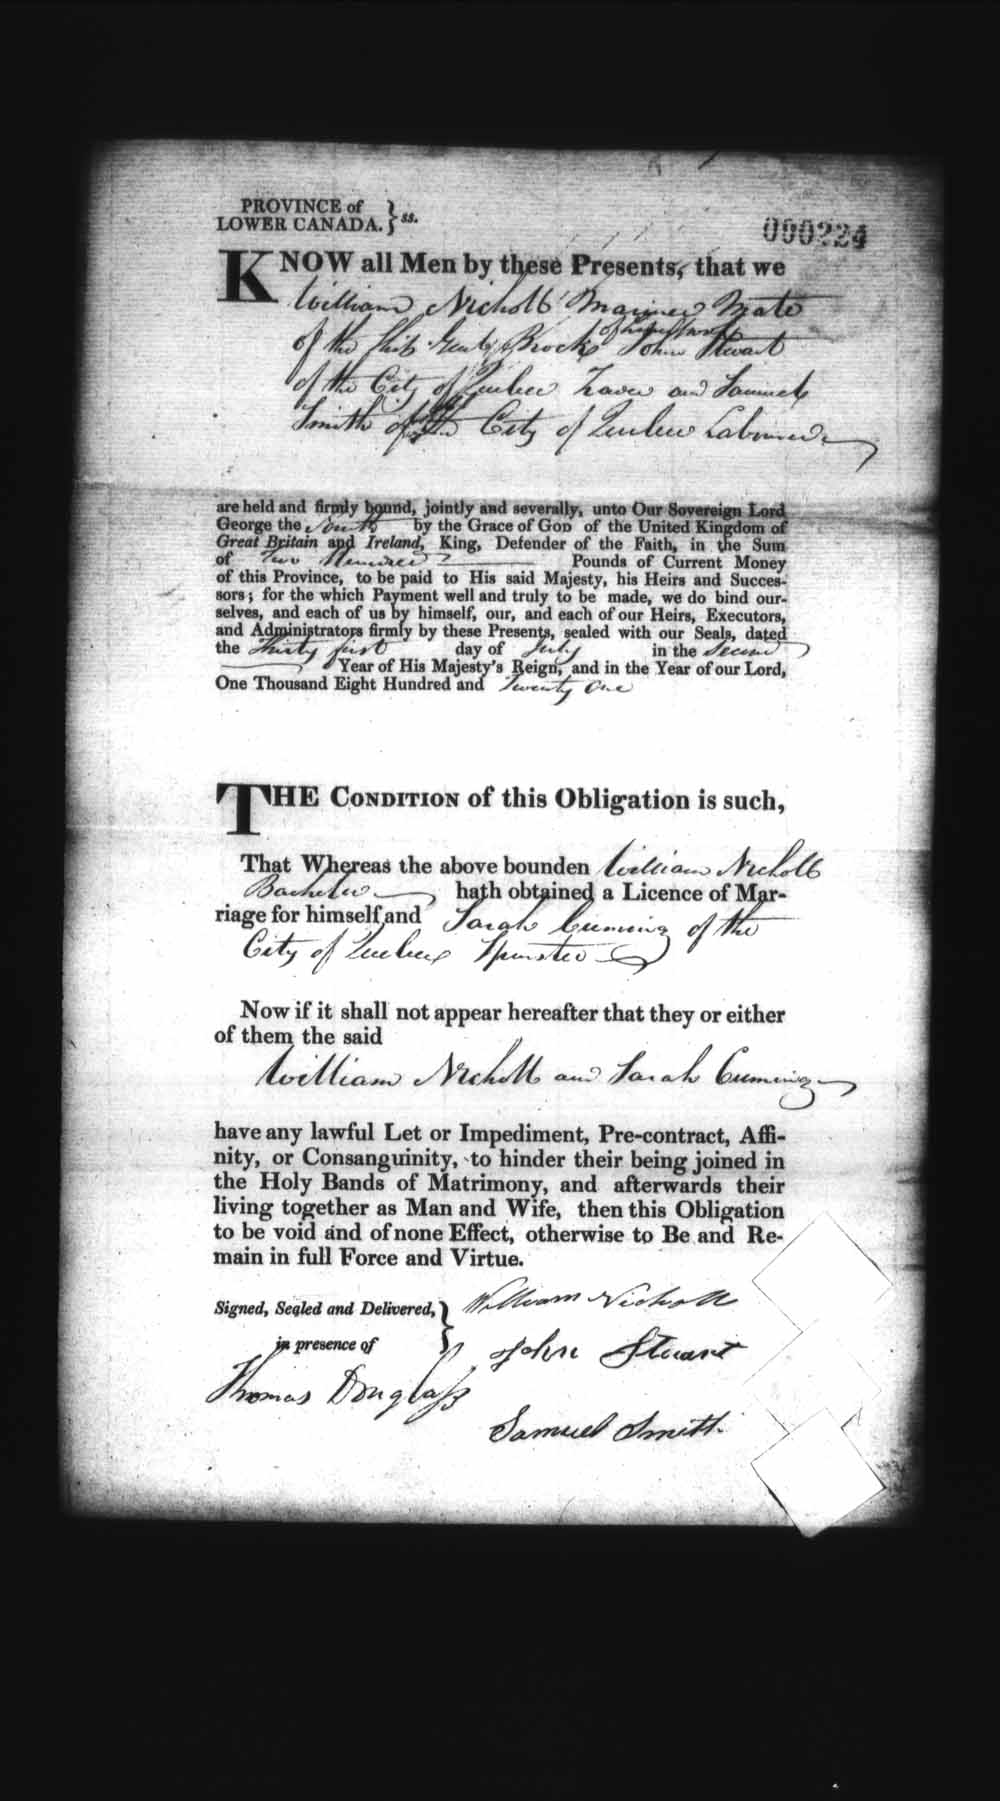 PROVINCE of
LOWER CANADA. } ss.
000224
KNOW all Men by these Presents, that we
William Nicholl Mariner Mate
of the Ship Genl. Brock John Stuart
of the City of Quebec and Samuel
Smith of the City of Quebec Labourer
are held and firmly bound, jointly and severally, unto Our Sovereign Lord
George the Fourth by the Grace of GOD of the United Kingdom of
Great Britain and Ireland, King, Defender of the Faith, in the Sum
of Two Hundred Pounds of Current Money
of this Province, to be paid to His said Majesty, his Heirs and Succes-
sors; for the which Payment well and truly to be made, we do bind our-
selves, and each of us by himself, our, and each of our Heirs, Executors,
and Administrators firmly by these Presents, sealed with our Seals, dated
the Thirty first day of July in the Second
Year of His Majesty's Reign, and in the Year of our Lord,
One Thousand Eight Hundred and Twenty One
THE CONDITION of this Obligation is such,
That Whereas the above bounden William Nicholl
Bachelor hath obtained a Licence of Mar-
riage for himself and Sarah Cuming of the
City of Quebec Spinster
Now if it shall not appear hereafter that they or either
of them the said
William Nicholl and Sarah Cuming
have any lawful Let or Impediment, Pre-contract, Affi-
nity, or Consanguinity, to hinder their being joined in
the Holy Bands of Matrimony, and afterwards their
living together as Man and Wife, then this Obligation
to be void and of none Effect, otherwise to Be and Re-
main in full Force and Virtue.
Signed, Sealed and Delivered, } William Nicholl
in presence of John Stuart
Thomas Douglass
Samuel Smith